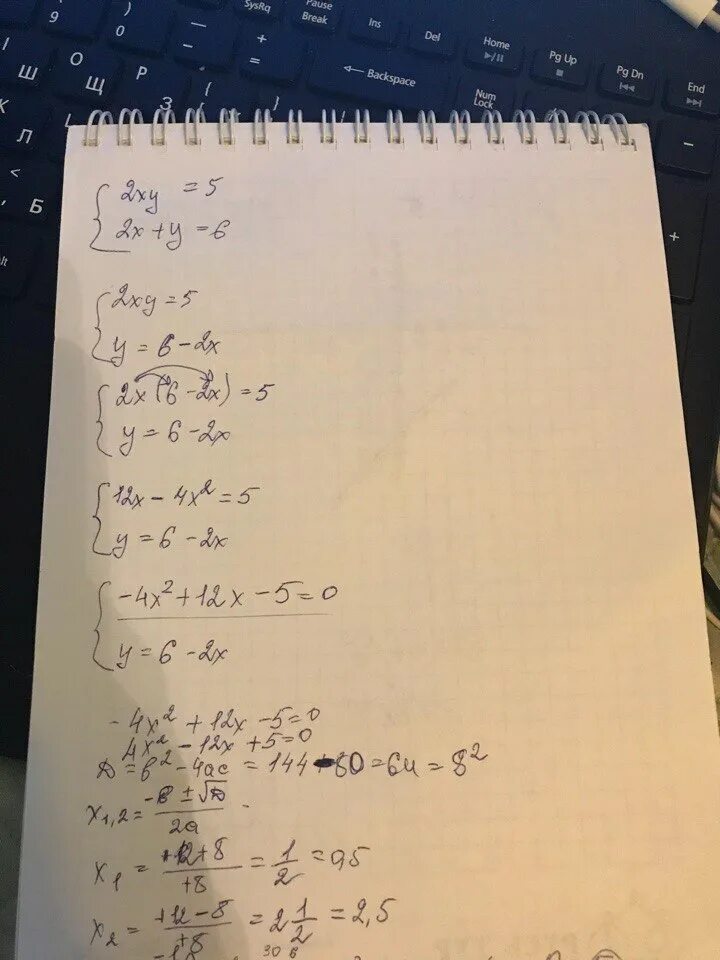 ) SysRq Pause Break Ins Del Home Pg Up Pg Dn End
9 0 - + = Backspace Num Lock
Ш О Щ Р З {
Л
< Б
+
2xy = 5
2x + y = 6
2xy = 5
y = 6 - 2x
2x(6 - 2x) = 5
y = 6 - 2x
12x - 4x² = 5
y = 6 - 2x
-4x² + 12x - 5 = 0
y = 6 - 2x
-4x² + 12x - 5 = 0
4x² - 12x + 5 = 0
D = b² - 4ac = 144 - 80 = 64 = 8²
x₁,₂ = (-b ± √D) / 2a
x₁ = (+12 + 8) / +8 = 1/2 = 0,5
x₂ = (+12 - 8) / +8 = 2 1/2 = 2,5